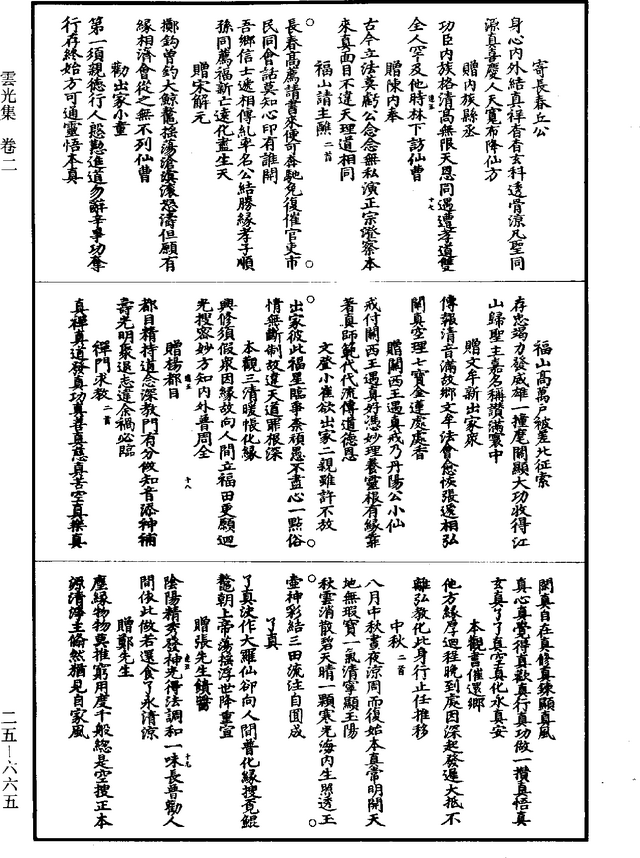 寄長春丘公
身心內外結真祥杳杳玄科透骨涼凡聖同
源真喜慶人天寬布降仙方
贈內族縣丞
功臣內族格清高無限天恩同遇遭孝道雙
全人罕及他時林下訪仙曹
贈陳內奉
古今立法莫虧公念念無私演正宗證察本
來真面目不違天理道相同
福山請主醮二首
長春高薦請書來便奇奔馳免復催官吏市
民同會話莫知心印有誰開
吾鄉信士遞相傳糺率名公結勝緣孝子順
孫同薦福新亡遠化盡生天
贈宋解元
擲鈎曾釣大鯨鼇搖蕩滄溟滾怒濤但願有
緣相濟會從之無不列仙曹
勸出家小童
第一須親德行人慇懃進道勿辭辛事功奪
行存終始方可通靈悟本真
福山高萬戶被差北征索
存忠竭力發威雄一撞麾關顯大功收得江
山歸聖主嘉名稱讚滿寰中
贈文牟新出家衆
傳報清音滿故鄉文牟法會愈恢張遞相弘
闡真空理七寶金蓮處處香
贈關西王遇真戒乃丹陽公小仙
戒付關西王遇真好憑妙理養靈根有緣靠
著真師範代代流傳道德恩
文登小崔欲出家二親雖許不放
出家彼此福星臨爭柰頑愚不盡心一點俗
情無斷制故違天道罪根深
本觀三清暖帳化緣
興修須假衆因緣故向人間立福田更願迴
光搜密妙方知內外普周全
贈楊都目
都目精持道念深教門有分做知音添神補
壽光明衆退志違余禍必臨
禪門求教二首
真禪真道發真功真善真慈真苦空真樂真
閑真自在真修真鍊顯真風
真心真覺得真歡真行真功做一攢真悟真
玄真了了真空真化永真安
本觀書催還鄉
他方緣厚迴程晚到處因深起發遲大抵不
離弘教化此身行止任推移
中秋二首
八月中秋晝夜涼周而復始本真常明開天
地無瑕寶一氣清寧顯玉陽
秋雲消散碧天晴一顆寒光海內生照透玉
壺神彩結三田流注自圓成
了真
了真決作大羅仙卻向人間普化緣搜覓鯤
鼇朝上帝蕩搖浮世降重宣
贈張先生饋醬
陰陽精秀發神光得法調和一味長普勸人
間依此做若還食了永清涼
贈鄭先生
塵緣物物莫推窮用度千般總是空搜正本
源清淨主翛然猶見自家風
雲光集 卷二
二五—六六五